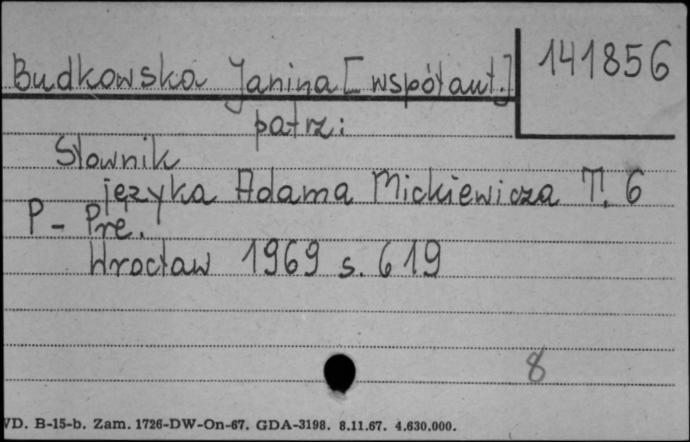 Budkowska Janina [współaut.]
141856
patrz:
Słownik
języka Adama Mickiewicza T. 6
P - Prę.
Wrocław 1969 s. 619
8
VD. B-15-b. Zam. 1726-DW-On-67. GDA-3198. 8.11.67. 4.630.000.